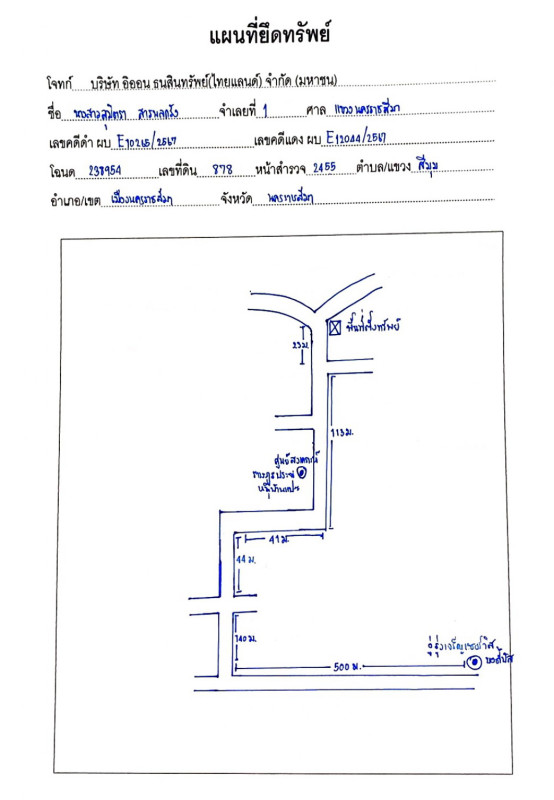 แผนที่ยึดทรัพย์
โจทก์ บริษัท อิออน ธนสินทรัพย์(ไทยแลนด์) จำกัด (มหาชน)
ชื่อ นางสาวสุมิตรา จำเลยที่ 1 ศาล แขวงนครราชสีมา
เลขคดีดำ ผบ E10265/2567 เลขคดีแดง ผบ E12044/2567
โฉนด 238954 เลขที่ดิน 878 หน้าสำรวจ 2455 ตำบล/แขวง สีมุม
อำเภอ/เขต เมืองนครราชสีมา จังหวัด นครราชสีมา
พื้นที่ตั้งทรัพย์
23 ม.
113 ม.
ศูนย์สงเคราะห์
ราษฎรประจำ
หมู่บ้าน
41 ม.
44 ม.
140 ม.
อู่รุ่งเจริญเซอร์วิส
500 ม.